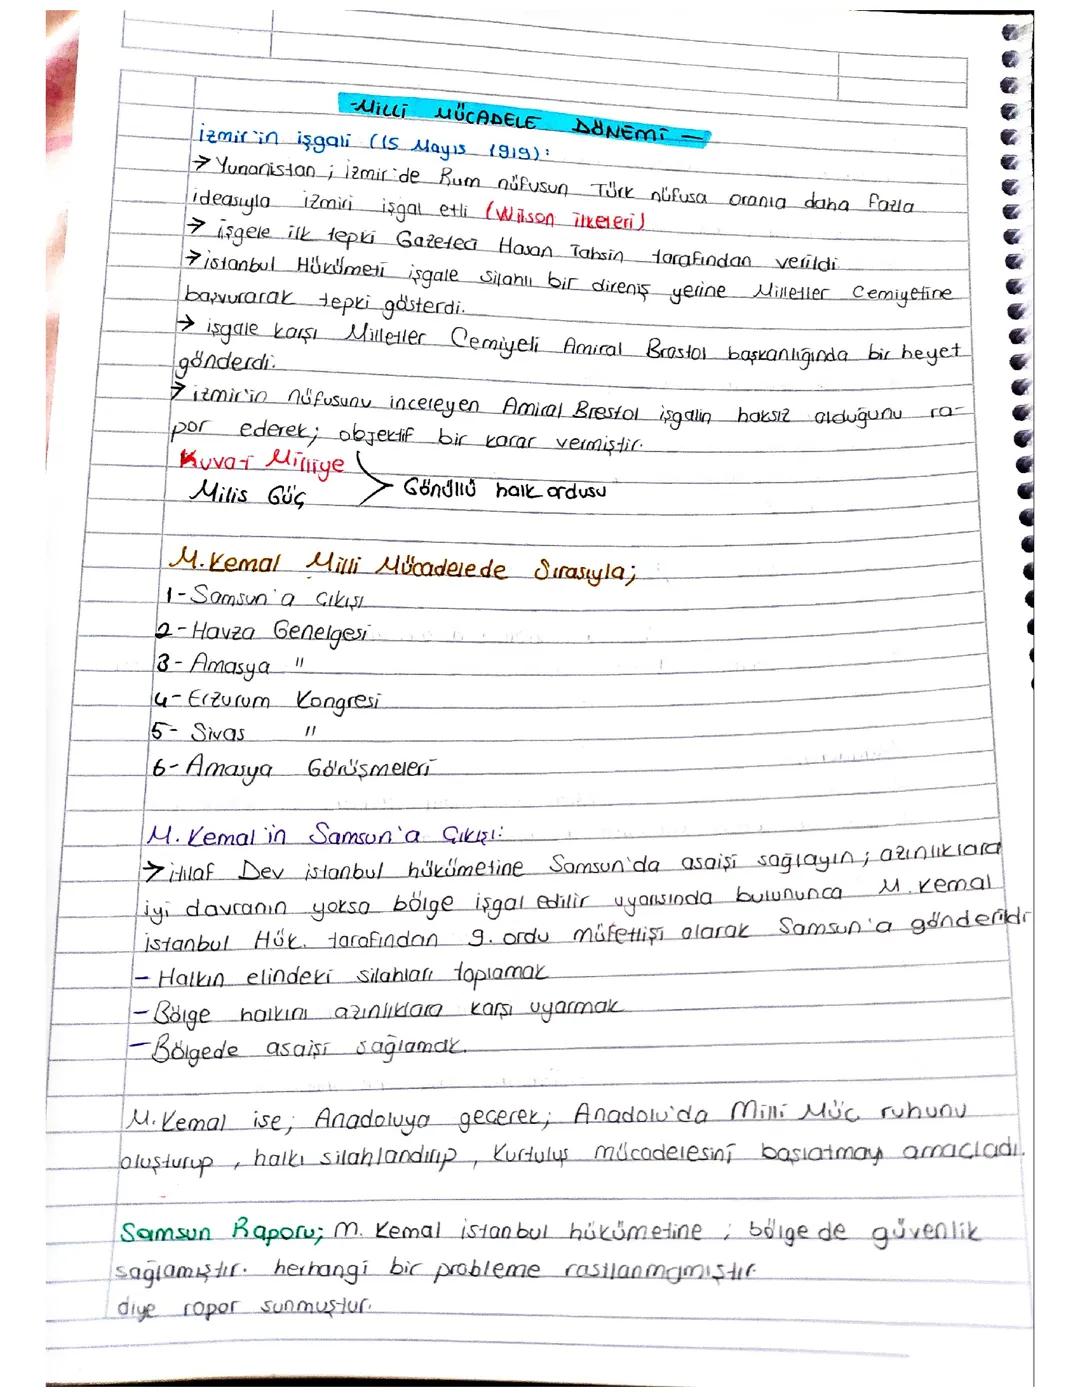 -Milli MÜCADELE DÖNEMİ -
İzmir'in işgali (15 Mayıs 1919):
→ Yunanistan ; izmir'de Rum nüfusun Türk nüfusa oranla daha fazla
ideasıyla izmiri işgal etti (Wilson ilkeleri)
→ işgele ilk tepki Gazeteci Hasan Tahsin tarafından verildi
→ istanbul Hükümeti işgale silahlı bir direniş yerine Milletler Cemiyetine
başvurarak tepki gösterdi.
→ işgale karşı Milletler Cemiyeti Amiral Brostol başkanlığında bir heyet
gönderdi.
→ izmir'in nüfusunu inceleyen Amiral Brestol işgalin haksız olduğunu ra-
por ederek; objektif bir karar vermiştir.
Kuva-i Milliye
Milis Güç > Gönüllü halk ordusu
M.Kemal Milli Mücadelede Sırasıyla;
1-Samsun'a Çıkışı
2-Havza Genelgesi
3-Amasya "
4-Erzurum Kongresi
5- Sivas "
6-Amasya Görüşmeleri
M. Kemal'in Samsun'a Çıkışı:
→ itilaf Dev istanbul hükümetine Samsun'da asaişi sağlayın ; azınlıklara
iyi davranın yoksa bölge işgal edilir uyarısında bulununca M. Kemal
istanbul Hük. tarafından 9. ordu müfettişi olarak Samsun'a gönderildi
- Halkın elindeki silahları toplamak
- Bölge halkını azınlıklara karşı uyarmak
- Bölgede asaişi sağlamak.
M.Kemal ise; Anadoluya geçerek; Anadolu'da Milli Müc ruhunu
oluşturup , halkı silahlandırıp , Kurtuluş mücadelesini başlatmayı amaçladı.
Samsun Raporu; M. Kemal istanbul hükümetine ; bölgede güvenlik
sağlamıştır. herhangi bir probleme rastlanmamıştır
diye rapor sunmuştur.